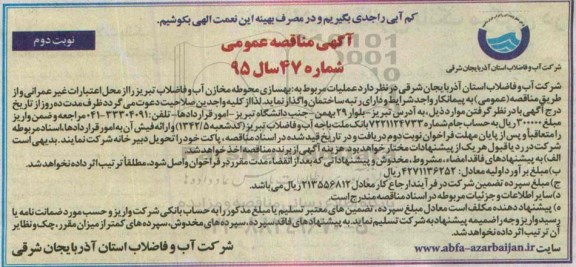 کم آبی را جدی بگیریم و در مصرف بهینه این نعمت الهی بکوشیم.
نوبت دوم
آگهی مناقصه عمومی
شماره ۴۷ سال ۹۵
شرکت آب و فاضلاب استان آذربایجان شرقی
شرکت آب و فاضلاب استان آذربایجان شرقی در نظر دارد عملیات مربوط به: بهسازی محوطه مخازن آب و فاضلاب تبریز را از محل اعتبارات غیر عمرانی و از
طریق مناقصه (عمومی) به پیمانکار واجد شرایط و دارای رتبه ساختمان واگذار نماید. لذا از کلیه واجدین صلاحیت دعوت می گردد ظرف مدت ده روز از تاریخ
درج آگهی با در نظر گرفتن موارد ذیل، به آدرس تبریز- بلوار ۲۹ بهمن- جنب دانشگاه تبریز- امور قراردادها- تلفن: ۳۳۳۰۴۰۹۱-۰۴۱ مراجعه و ضمن واریز
مبلغ ۳۰۰۰۰۰ ریال به حساب جام شماره ۷۲۲۱۱۲۴۷۳۳ بانک ملت باجه آب و فاضلاب تبریز (کد شعبه ۱۳۴۲/۵) و ارائه فیش آن به امور قراردادها، اسناد مربوطه
را متعاقباً و پس از پایان مهلت فراخوان نوبت دوم دریافت و در تاریخ قید شده در اسناد مناقصه، پاکت خود را تحویل دبیرخانه شرکت نمایند. بدیهی است
شرکت در رد یا قبول هر یک از پیشنهادات مختار خواهد بود. هزینه آگهی از برنده مناقصه اخذ خواهد شد.
الف) به پیشنهادهای فاقد امضاء، مشروط، مخدوش و پیشنهاداتی که بعد از انقضاء مدت مقرر در فراخوان واصل شود، مطلقاً ترتیب اثر داده نخواهد شد.
ب) مبلغ برآورد اولیه معادل: ۴۲۷۱۱۳۶۲۵۲ ریال می باشد.
ج) مبلغ سپرده تضمین شرکت در فرآیند ارجاع کار معادل ۲۱۳۵۵۶۸۱۲ ریال می باشد.
د) سایر اطلاعات و جزئیات مربوطه در اسناد مناقصه مندرج است.
ه) پیشنهاد دهنده مکلف است معادل مبلغ سپرده، تضمین های معتبر تسلیم یا مبلغ مذکور را به حساب بانکی شرکت واریز و حسب مورد ضمانت نامه یا
رسید واریز وجه را ضمیمه پیشنهاد به شرکت تسلیم نماید. به پیشنهادهای فاقد سپرده، سپرده های مخدوش، سپرده های کمتر از میزان مقرر، چک و نظایر
آن ترتیب اثر داده نخواهد شد.
سایت www.abfa-azarbaijan.ir
شرکت آب و فاضلاب استان آذربایجان شرقی